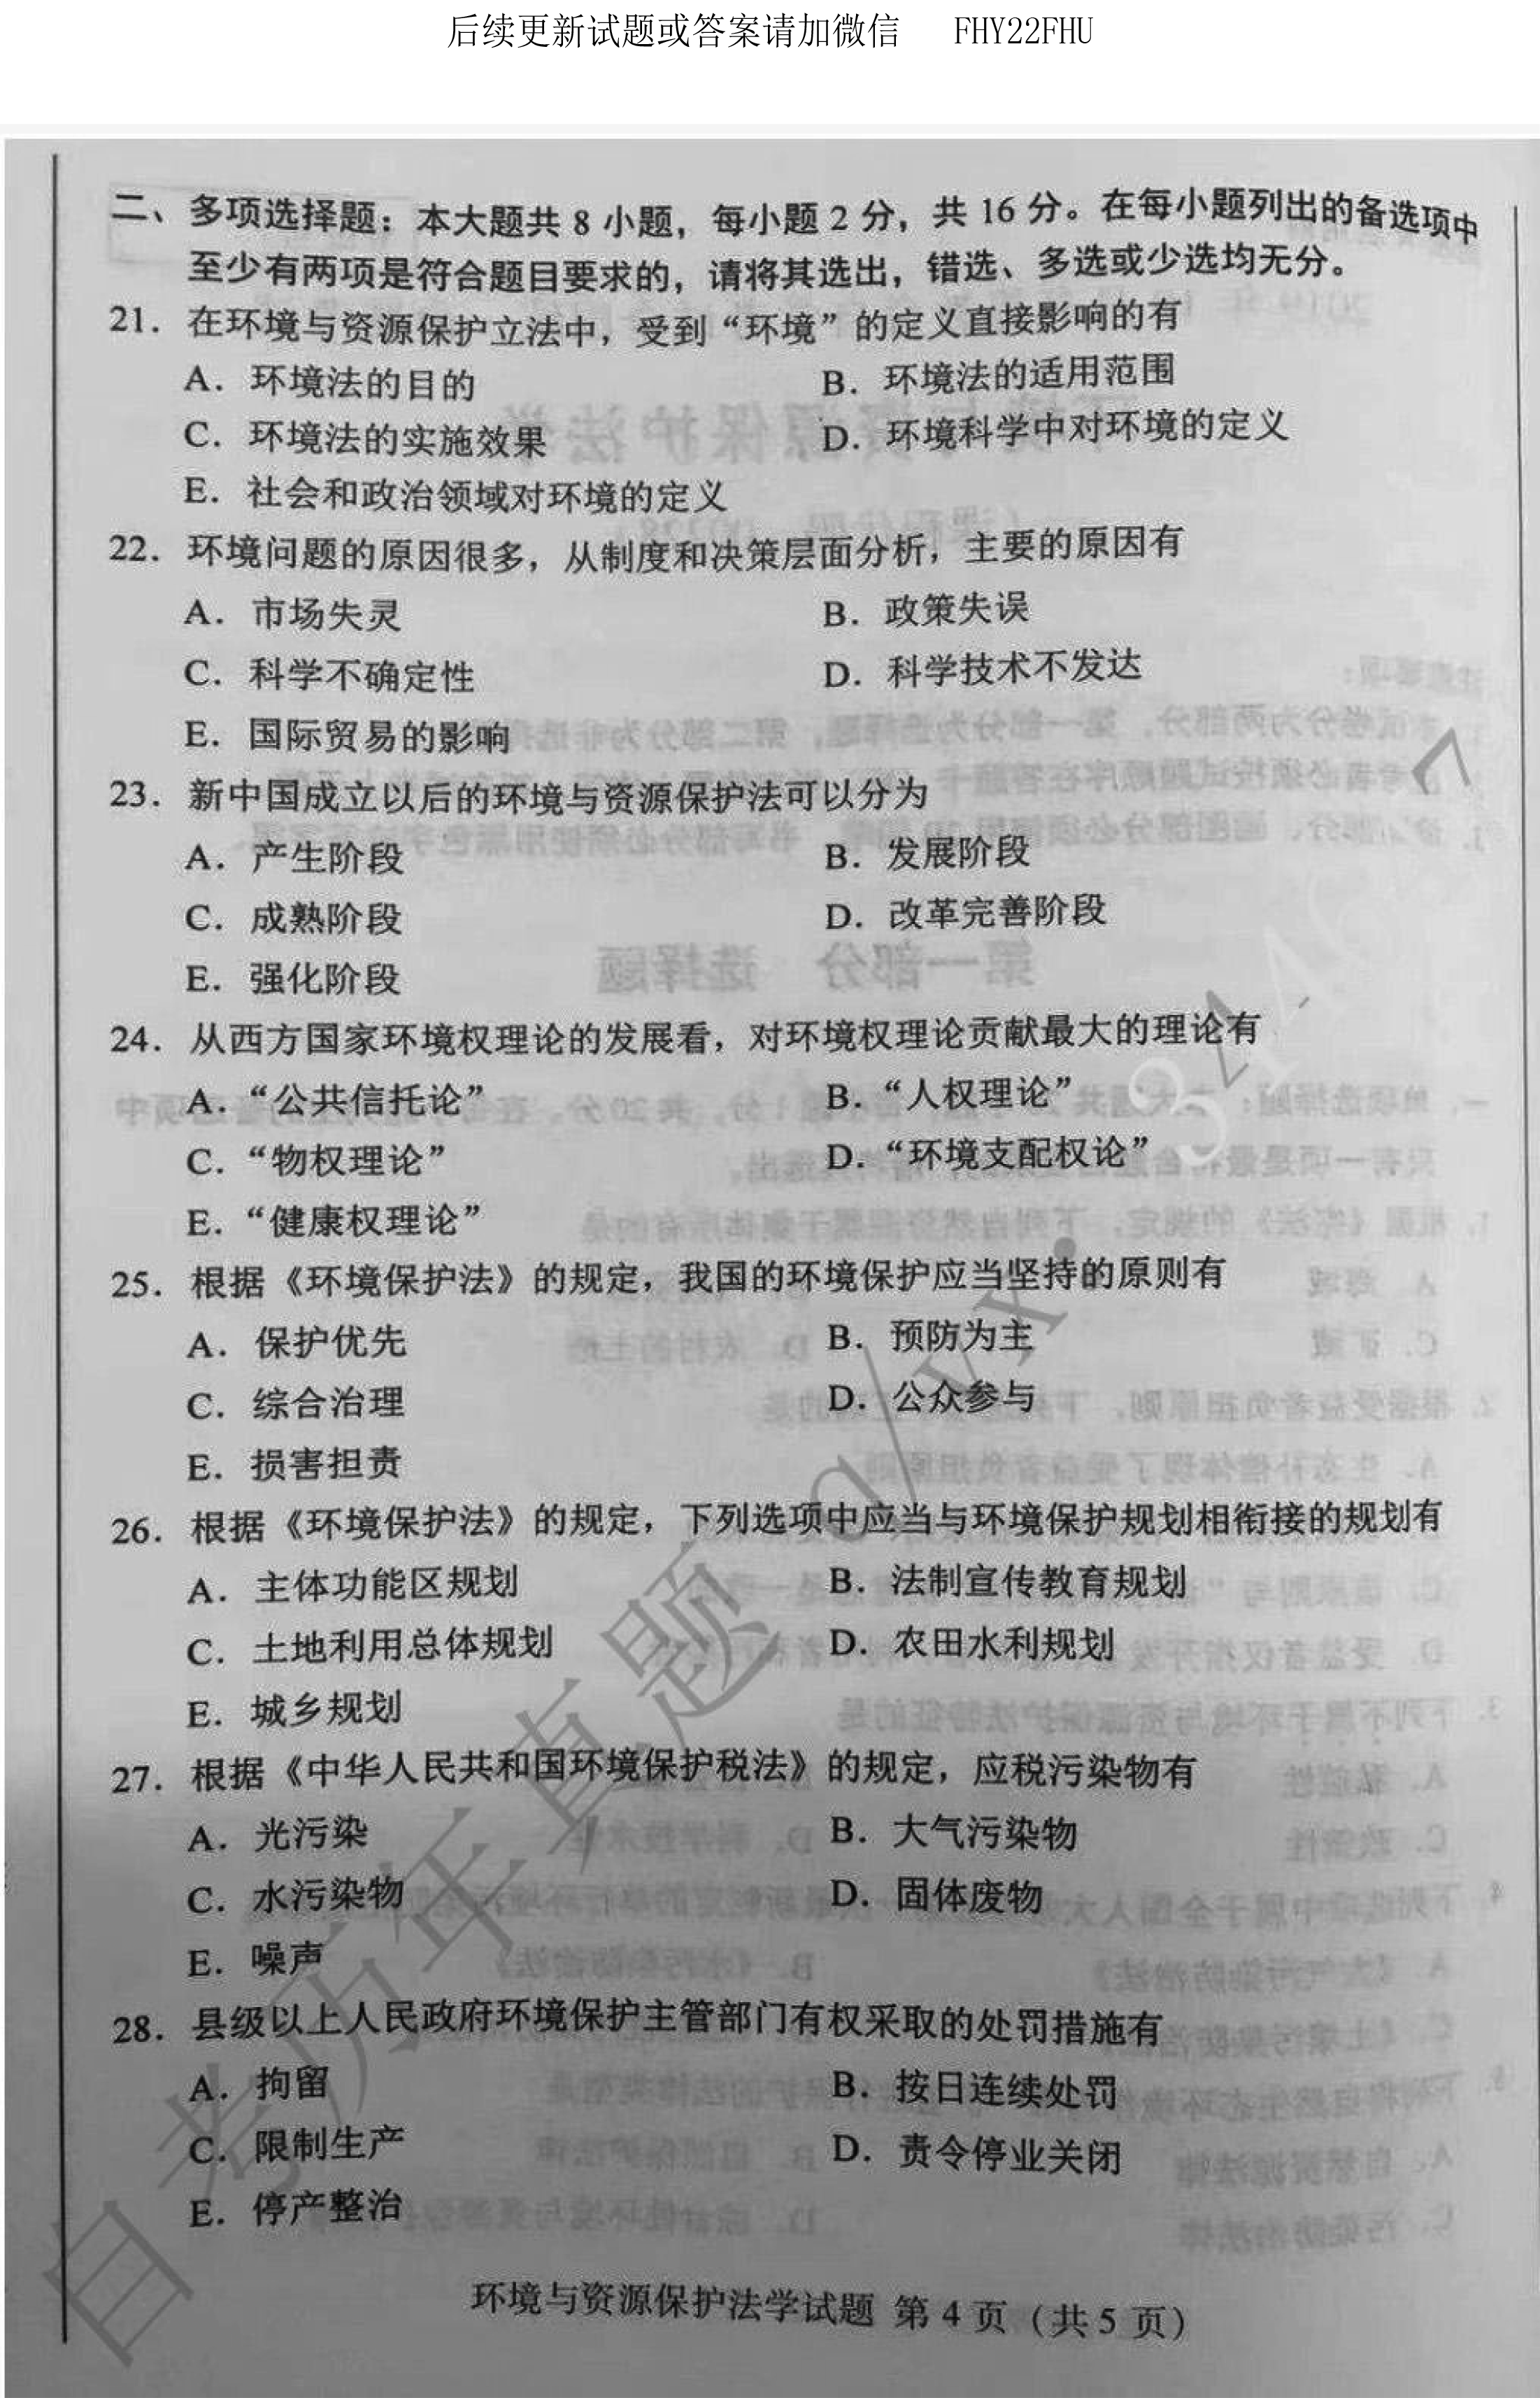 后续更新试题或答案请加微信 FHY22FHU
二、多项选择题：本大题共 8 小题，每小题 2 分，共 16 分。在每小题列出的备选项中
至少有两项是符合题目要求的，请将其选出，错选、多选或少选均无分。
21．在环境与资源保护立法中，受到“环境”的定义直接影响的有
A．环境法的目的 B．环境法的适用范围
C．环境法的实施效果 D．环境科学中对环境的定义
E．社会和政治领域对环境的定义
22．环境问题的原因很多，从制度和决策层面分析，主要的原因有
A．市场失灵 B．政策失误
C．科学不确定性 D．科学技术不发达
E．国际贸易的影响
23．新中国成立以后的环境与资源保护法可以分为
A．产生阶段 B．发展阶段
C．成熟阶段 D．改革完善阶段
E．强化阶段
24．从西方国家环境权理论的发展看，对环境权理论贡献最大的理论有
A．“公共信托论” B．“人权理论”
C．“物权理论” D．“环境支配权论”
E．“健康权理论”
25．根据《环境保护法》的规定，我国的环境保护应当坚持的原则有
A．保护优先 B．预防为主
C．综合治理 D．公众参与
E．损害担责
26．根据《环境保护法》的规定，下列选项中应当与环境保护规划相衔接的规划有
A．主体功能区规划 B．法制宣传教育规划
C．土地利用总体规划 D．农田水利规划
E．城乡规划
27．根据《中华人民共和国环境保护税法》的规定，应税污染物有
A．光污染 B．大气污染物
C．水污染物 D．固体废物
E．噪声
28．县级以上人民政府环境保护主管部门有权采取的处罚措施有
A．拘留 B．按日连续处罚
C．限制生产 D．责令停业关闭
E．停产整治
环境与资源保护法学试题 第 4 页（共 5 页）
自考历年真题